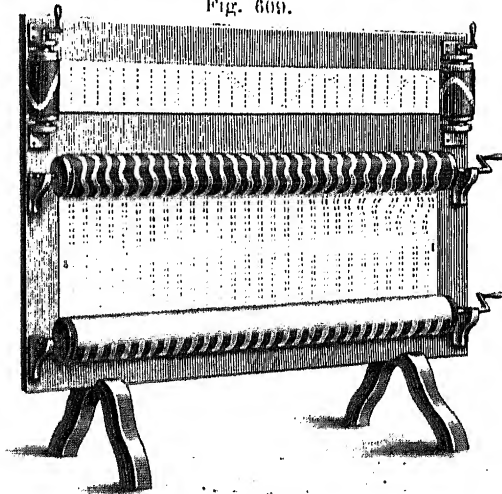 Fig. 609.